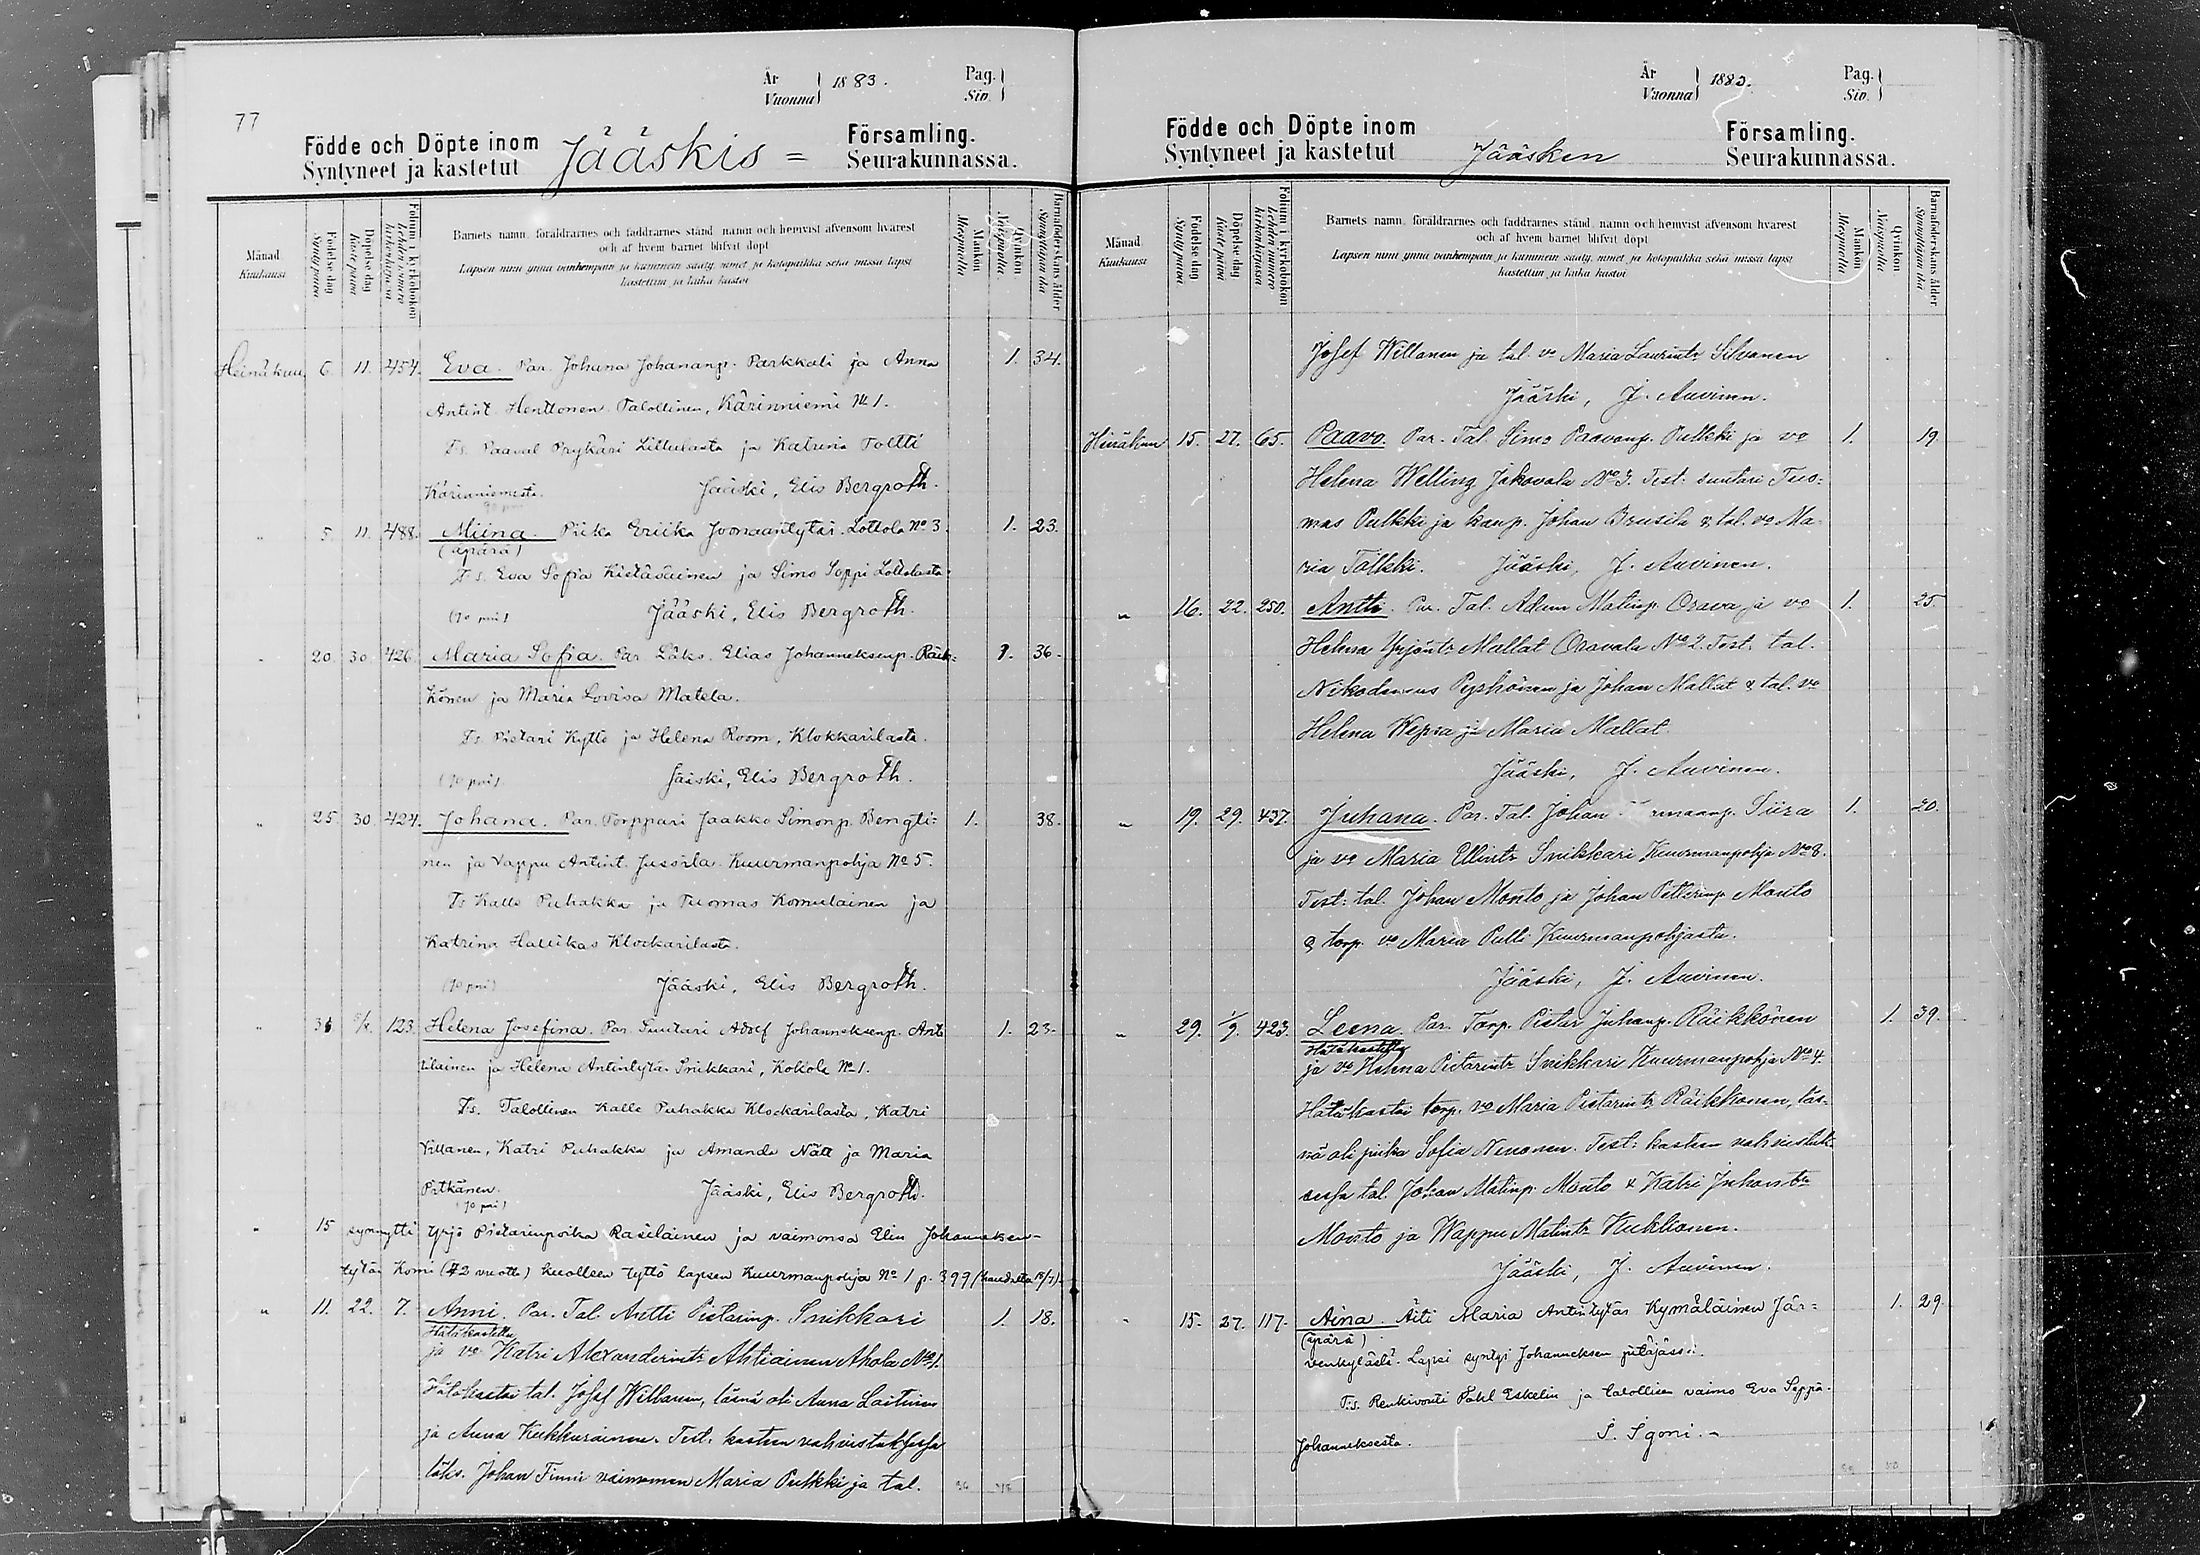 77
År
Vuonna 1883.
Pag.
Siv.
Födde och Döpte inom
Syntyneet ja kastetut
Jääskis =
Församling.
Seurakunnassa.
Månad
Kuukausi
Födelsedag
Syntypäivä
Döpelsedag
Kastepäivä
Folium i kyrkoboken
Lehden numero kirkonkirjassa
Barnets namn, föräldrarnes och faddrarnes stånd, namn och hemvist äfvensom hvarest
och af hvem barnet blifvit döpt
Lapsen nimi ynnä vanhempain ja kummein sääty, nimet ja kotopaikka sekä missä lapsi
kastettiin ja kuka kastoi
Mankön
Miespuolta
Qvinkön
Naispuolta
Barnaföderskans ålder
Synnyttäjän ikä
Heinäkuu 6. 11. 454. Eva. Par. Johana Johananp. Parkkali ja Anna 1. 34.
Antint. Henttonen. Talollinen, Kärinniemi № 1.
T:s. Paaval Prykäri Littulasta ja Katrina Toltti
Kärinniemestä. Jääski, Elis Bergroth.
" 5. 11. 488. Miina. Piika Eriika Joonaantytär. Lottola No 3. 1. 23.
(äpärä)
T:s. Eva Sofia Kietäväinen ja Simo Soppi Lottolasta.
(10 pni) Jääski, Elis Bergroth.
" 20. 30. 426. Maria Sofia. Par. Läks. Elias Johanneksenp. Räik= 1. 36.
könen ja Maria Lovisa Matela.
T:s. Pietari Kyttö ja Helena Room, Klokkarilasta.
(10 pni) Jääski, Elis Bergroth.
" 25. 30. 424. Johana. Par. Torppari Jaakko Simonp. Bengti= 1. 38.
nen ja Vappu Antint. Jussila. Kuurmanpohja No 5.
T:s Kalle Puhakka ja Tuomas Komulainen ja
Katrina Hallikas Klockarilasta.
(10 pni) Jääski, Elis Bergroth.
" 31 123. Helena Josefina. Par. Suutari Adolf Johanneksenp. Ant= 1. 23.
tilainen ja Helena Antintytär Snikkari, Kokola No 1.
T:s. Talollinen Kalle Puhakka Klockarilasta, Katri
Villanen, Katri Puhakka ja Amanda Nätt ja Maria
Pitkänen. Jääski, Elis Bergroth.
(10 pni)
" 15 synnytti Yrjö Pietarinpoika Rasilainen ja vaimonsa Elin Johanneksen-
tytär Komi (42 vuotta) kuolleen tyttö lapsen Kuurmanpohja No 1 p. 399
" 11. 22. 7. Anni. Par. Tal. Antti Pietarinp. Snikkari 1. 18.
Hätäkastettu
ja vo Katri Alexanderintr Ahtiainen Ahola No 1.
Hätäkastoi tal. Josef Willanen, läsnä oli Anna Laitinen
ja Anna Kukkurainen. Test. kasteen vahvistuksessa
läks. Johan Tinni vaimonsa Maria Pulkki ja tal.
År
Vuonna 1883.
Pag.
Siv.
Födde och Döpte inom
Syntyneet ja kastetut
Jääsken
Församling.
Seurakunnassa.
Månad
Kuukausi
Födelsedag
Syntypäivä
Döpelsedag
Kastepäivä
Folium i kyrkoboken
Lehden numero kirkonkirjassa
Barnets namn, föräldrarnes och faddrarnes stånd, namn och hemvist äfvensom hvarest
och af hvem barnet blifvit döpt
Lapsen nimi ynnä vanhempain ja kummein sääty, nimet ja kotopaikka sekä missä lapsi
kastettiin ja kuka kastoi
Mankön
Miespuolta
Qvinkön
Naispuolta
Barnaföderskans ålder
Synnyttäjän ikä
Josef Willanen ja tal. vo Maria Laurintr Silvanen
Jääski, J. Auvinen.
Heinäkuu 15. 27. 65. Paavo. Par. Tal. Simo Paavonp. Pulkki ja vo 1. 19.
Helena Welling Jakovala No 3. Test: suutari Tuo=
mas Pulkki ja kaup. Johan Brusila & tal. vo Ma=
ria Tälkki. Jääski, J. Auvinen.
" 16. 22. 250. Antti. Par. Tal. Adam Matinp. Orava ja vo 1. 25.
Helena Yrjöntr Mallat Oravala No 2. Test. tal.
Nikodemus Pyshönen ja Johan Mallat & tal. vo
Helena Wepsa ja Maria Mallat.
Jääski, J. Auvinen.
" 19. 29. 437. Juhana. Par. Tal. Johan Siira 1. 20.
ja vo Maria Ellintr Snikkari Kuurmanpohja No 8.
Test: tal. Johan Monto ja Johan Petterinp. Monto
& torp. vo Maria Pulli Kuurmanpohjasta.
Jääski, J. Auvinen.
" 29. 1/9. 423. Leena. Par. Torp. Pietar Juhanp. Räikkönen 1. 39.
Hätäkastettu
ja vo Helena Pietarintr Snikkari Kuurmanpohja No 4.
Hätäkastoi torp. vo Maria Pietarintr Räikkönen, läs=
nä oli piika Sofia Nenonen. Test: kasteen vahvistuk=
sessa tal. Johan Matinp. Monto & Katri Juhantr
Monto ja Wappu Matintr Kukkonen.
Jääski, J. Auvinen.
" 15. 27. 117. Aina. Äiti Maria Antintytär Kymäläinen Jär= 1. 29.
(äpärä)
venkylästä. Lapsi syntyi Johanneksen pitäjässä.
T:s. Renkivouti Pahl Eskelin ja talollisen vaimo Eva Seppä.
Johanneksesta. S. Sgoni.